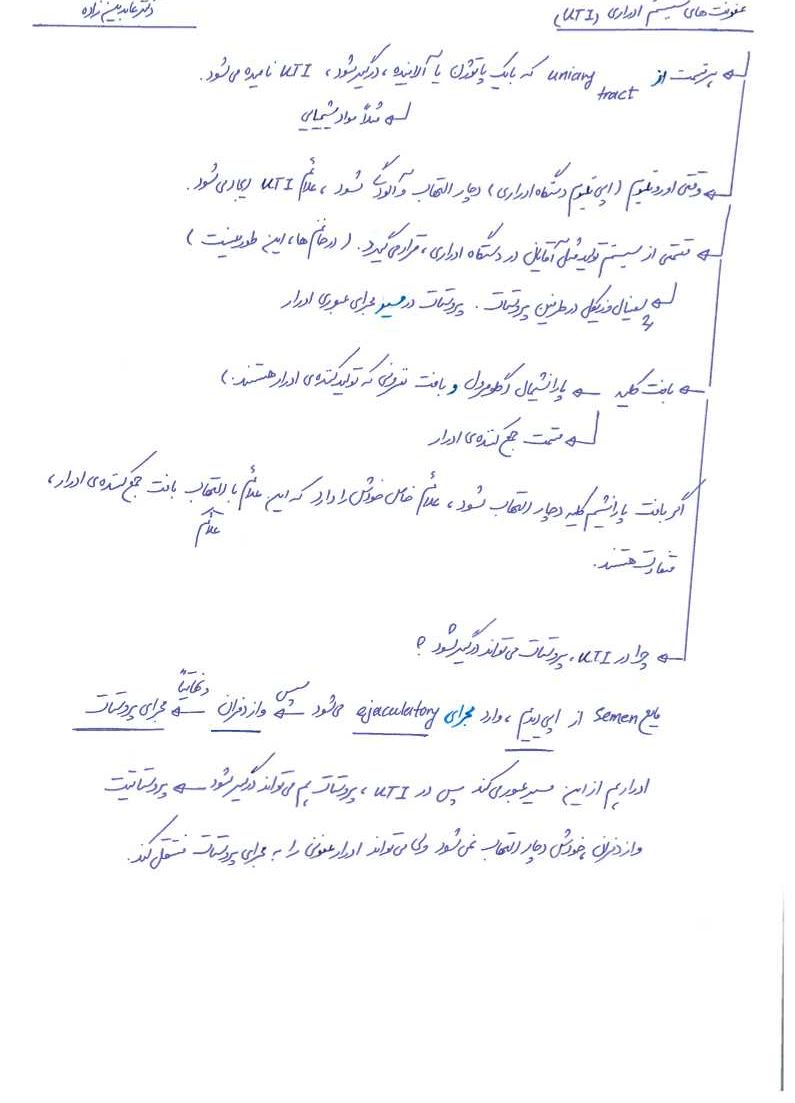 عفونت های سیستم ادراری (UTI)
دکتر عابدین زاده
هر قسمت از uniary tract که با یک پاتوژن یا آلاینده، درگیر شود، UTI نامیده می شود.
مثلاً مواد شیمیایی
وقتی اوروتلیوم (اپی تلیوم دستگاه ادراری) دچار التهاب و آلودگی شود، علائم UTI ایجاد می شود.
قسمتی از سیستم تولید مثل آقایان در دستگاه ادراری، قرار می گیرد. (در خانم ها، این طور نیست)
سمینال وزیکل در طرفین پروستات. پروستات در مسیر مجرای عبوری ادرار
بافت کلیه ← پارانشیمال (گلومرول و بافت نفرونی که تولید کننده ی ادرار هستند.)
قسمت جمع کننده ی ادرار
اگر بافت پارانشیم کلیه دچار التهاب شود، علائم خاص خودش را دارد که این علائم با التهاب بافت جمع کننده ی ادرار،
علائم
متفاوت هستند.
چرا در UTI، پروستات می تواند درگیر شود؟
مایع Semen از اپی دیدیم، وارد مجرای ejaculatory می شود سپس ← وازدفران و نهایتاً ← مجرای پروستات
ادرار هم از این مسیر عبور می کند پس در UTI، پروستات هم می تواند درگیر شود ← پروستاتیت
وازدفران، خودش دچار التهاب نمی شود ولی می تواند ادرار عفونی را به مجرای پروستات منتقل کند.